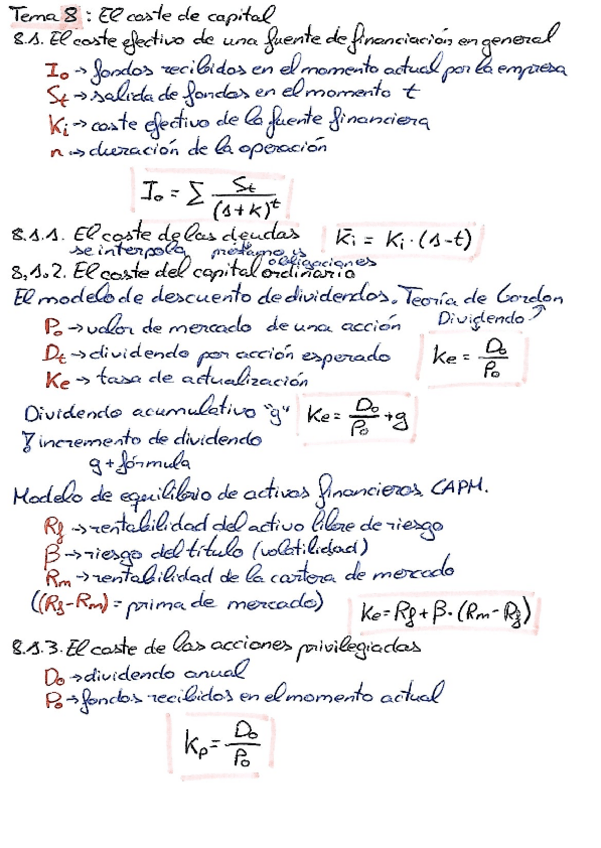 Tema 8: El coste de capital
8.1. El coste efectivo de una fuente de financiación en general
I₀ → fondos recibidos en el momento actual por la empresa
St → salida de fondos en el momento t
Ki → coste efectivo de la fuente financiera
n → duración de la operación
I₀ = Σ St / (1+k)^t
8.1.1. El coste de las deudas K̄i = Ki · (1-t)
se interpola préstamo y obligaciones
8.1.2. El coste del capital ordinario
El modelo de descuento de dividendos. Teoría de Gordon
P₀ → valor de mercado de una acción Dividendo ↗
Dt → dividendo por acción esperado Ke = D₀ / P₀
Ke → tasa de actualización
Dividendo acumulativo "g" Ke = D₀ / P₀ + g
incremento de dividendo
g + fórmula
Modelo de equilibrio de activos financieros CAPM.
Rf → rentabilidad del activo libre de riesgo
β → riesgo del título (volatilidad)
Rm → rentabilidad de la cartera de mercado
((Rf-Rm) = prima de mercado) Ke = Rf + β · (Rm - Rf)
8.1.3. El coste de las acciones privilegiadas
D₀ → dividendo anual
P₀ → fondos recibidos en el momento actual
Kp = D₀ / P₀